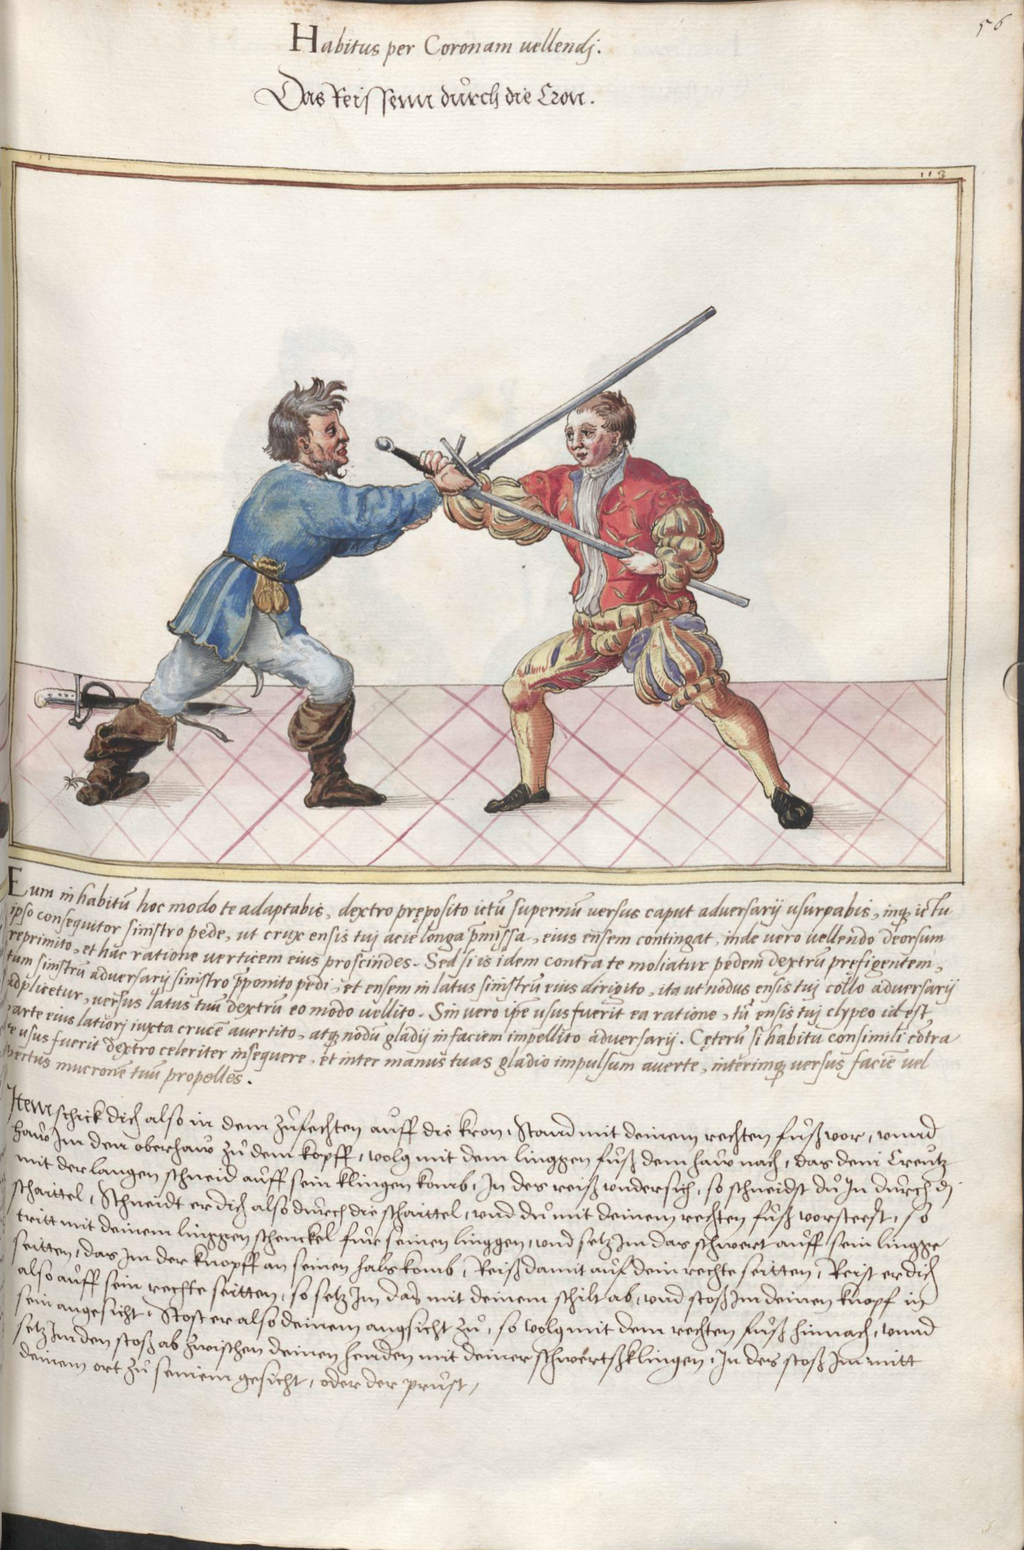 56
Habitus per Coronam uellendj.
Das Reissenn důrch die Cron.
113
Eum in habitũ hoc modo te adaptabis, dextro pręposito ictũ supernũ uersus caput aduersarij usurpabis, inq; ictu
ipso consequitor sinistro pede, ut crux ensis tuj acie longa p̃missa, eius ensem contingat, inde uero uellendo deorsum
reprimito, et hac ratione uerticem eius proscindes. Sed si is idem contra te moliatur pedem dextrũ prefigentem,
tum sinistrũ aduersarij sinistro p̃ponito pedi, et ensem in latus sinistrũ eius dirigito, ita ut nodus ensis tuj collo aduersarij
adplicetur, uersus latus tuũ dextrũ eo modo uellito. Sin uero ip̃e usus fuerit ea ratione, tũ ensis tuj clypeo id est
parte eius latiorj iuxta crucẽ auertito, atq; nodũ gladij in faciem impellito aduersarij. Cęterũ si habitu consimili cõtra
te usus fuerit dextro celeriter insequere, et inter manus tuas gladio impulsum auerte, interimq; uersus faciẽ uel
pectus mucronẽ tuũ propelles.
Item schick dich also in dem zůfechten auff die kron, Stand mit deinem rechten fůß vor, vnnd
haw Im den oberhaw zů dem kopff, volg mit dem linggen fůß dem haw nach, das dein Creutz
mit der langen schneid auff sein klingen komb, In des reiß vndersich, so schneidst du In durch die
schaittel, Schneidt er dich also durch die schaittel, vnd du mit deinem rechten fůß vorsteest, so
tritt mit deinem linggen schenckel fůr seinen linggen, vnd setz Im das schwert auff sein lingge
seitten, das Im der knopff an seinen hals komb, Reiß damit auf dein rechte seitten, Reist er dich
also auff sein rechte seitten, so setz Im das mit deinem schilt ab, vnd stoß Im deinen knopf in
sein angesicht, Stost er also deinem angsicht zů, so volg mit dem rechten fůß hinnach, vnnd
setz Im den stoß ab zwischen deinen henden mit deiner schwertsklingen, In des stoß Im mitt
deinem ort zů seinem gesicht, oder der prust,